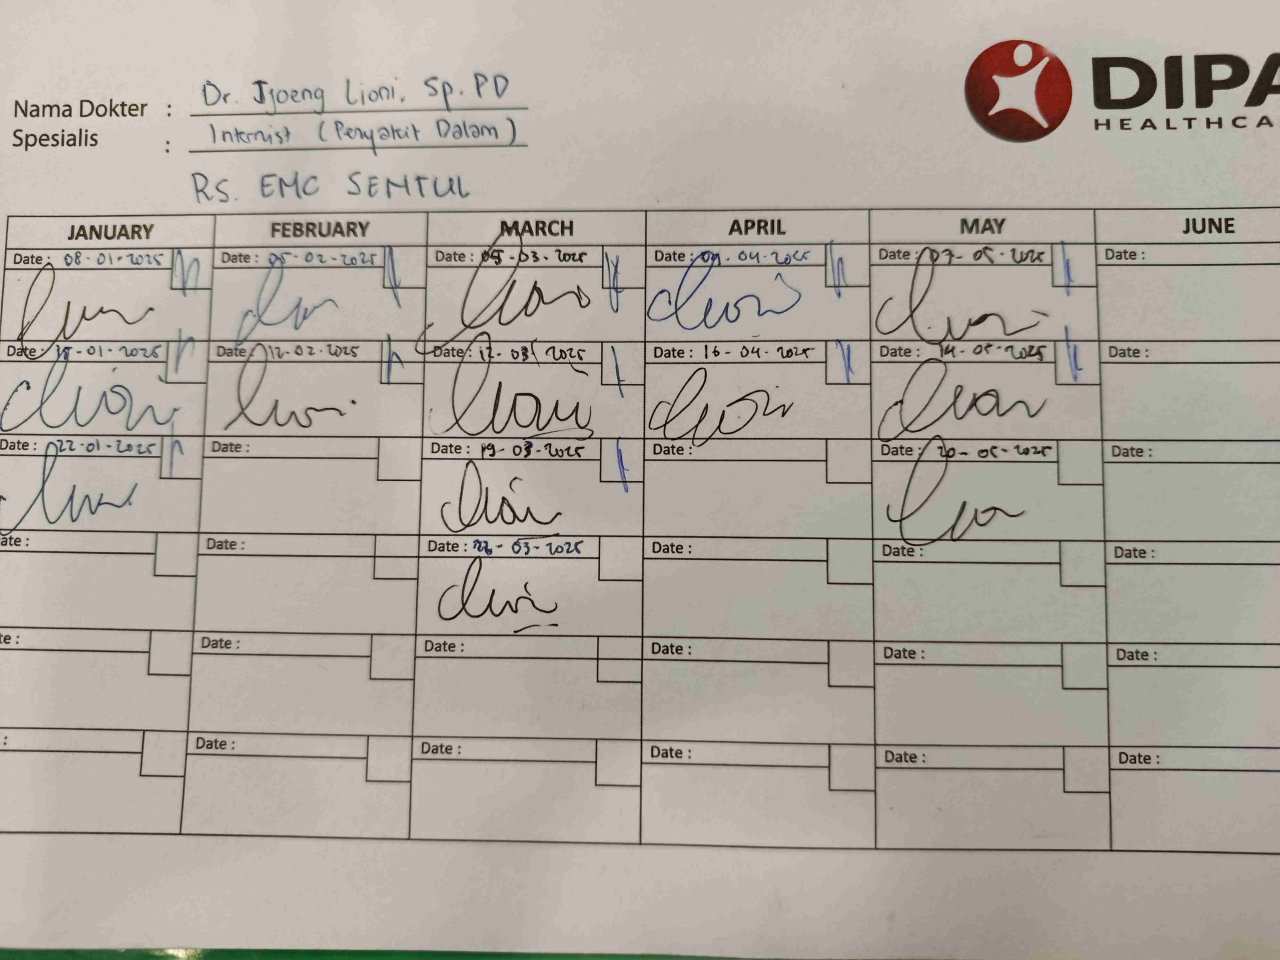 DIPA
HEALTHCA
Nama Dokter : Dr. Jjoeng Lioni, Sp.PD
Spesialis : Internist (Penyakit Dalam)
RS. EMC SENTUL
JANUARY FEBRUARY MARCH APRIL MAY JUNE
Date : 08-01-2025 Date : 05-02-2025 Date : 05-03-2025 Date : 09-04-2025 Date : 07-05-2025 Date :
Date : 15-01-2025 Date : 12-02-2025 Date : 12-03-2025 Date : 16-04-2025 Date : 14-05-2025 Date :
Date : 22-01-2025 Date : Date : 19-03-2025 Date : Date : 20-05-2025 Date :
ate : Date : Date : 26-03-2025 Date : Date : Date :
te : Date : Date : Date : Date : Date :
: Date : Date : Date : Date : Date :